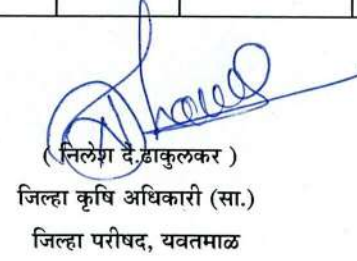 ( निलेश दे.ढाकुलकर )
जिल्हा कृषि अधिकारी (सा.)
जिल्हा परीषद, यवतमाळ